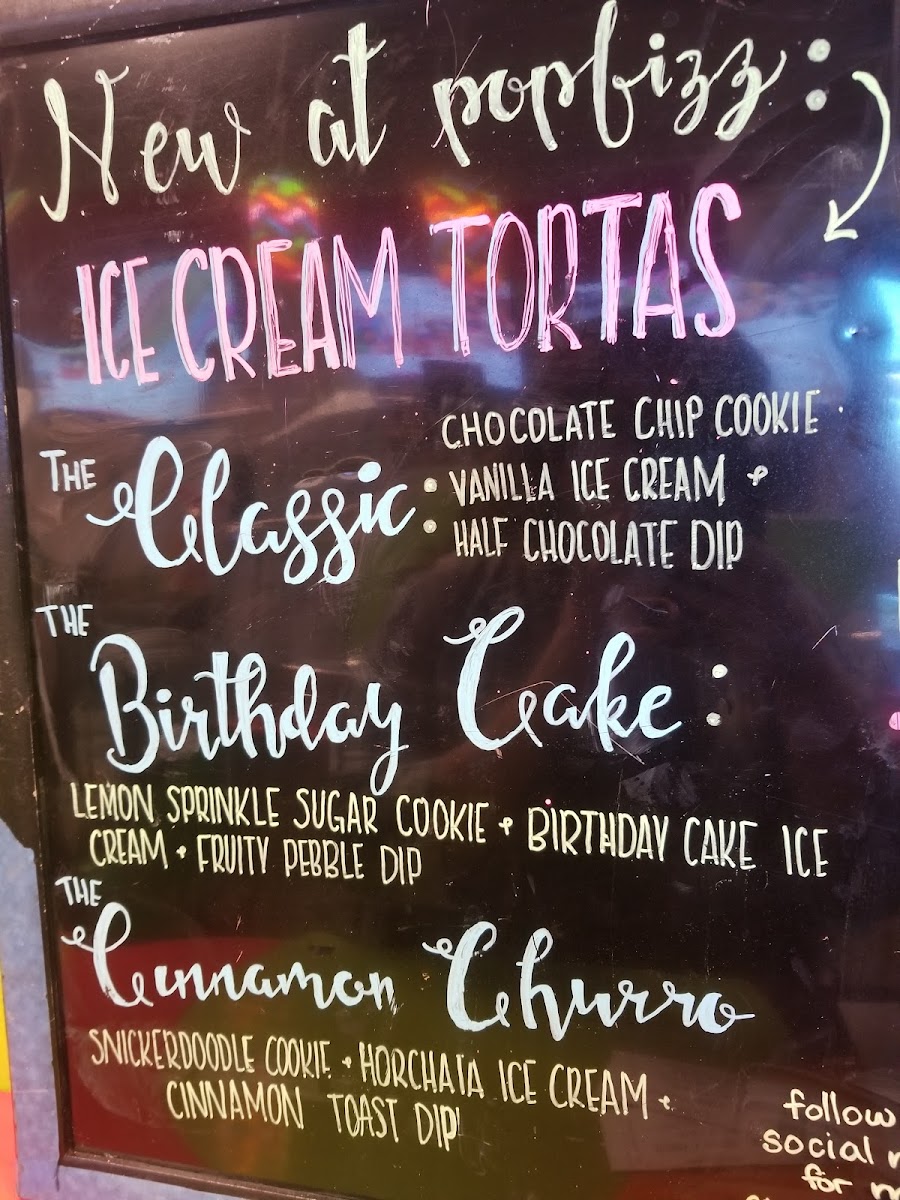 New at popfizz:
ICE CREAM TORTAS
THE Classic: CHOCOLATE CHIP COOKIE
VANILLA ICE CREAM +
HALF CHOCOLATE DIP
THE
Birthday Cake:
LEMON SPRINKLE SUGAR COOKIE + BIRTHDAY CAKE ICE
CREAM + FRUITY PEBBLE DIP
THE
Cinnamon Churro
SNICKERDOODLE COOKIE + HORCHATA ICE CREAM +
CINNAMON TOAST DIP
follow
social
for